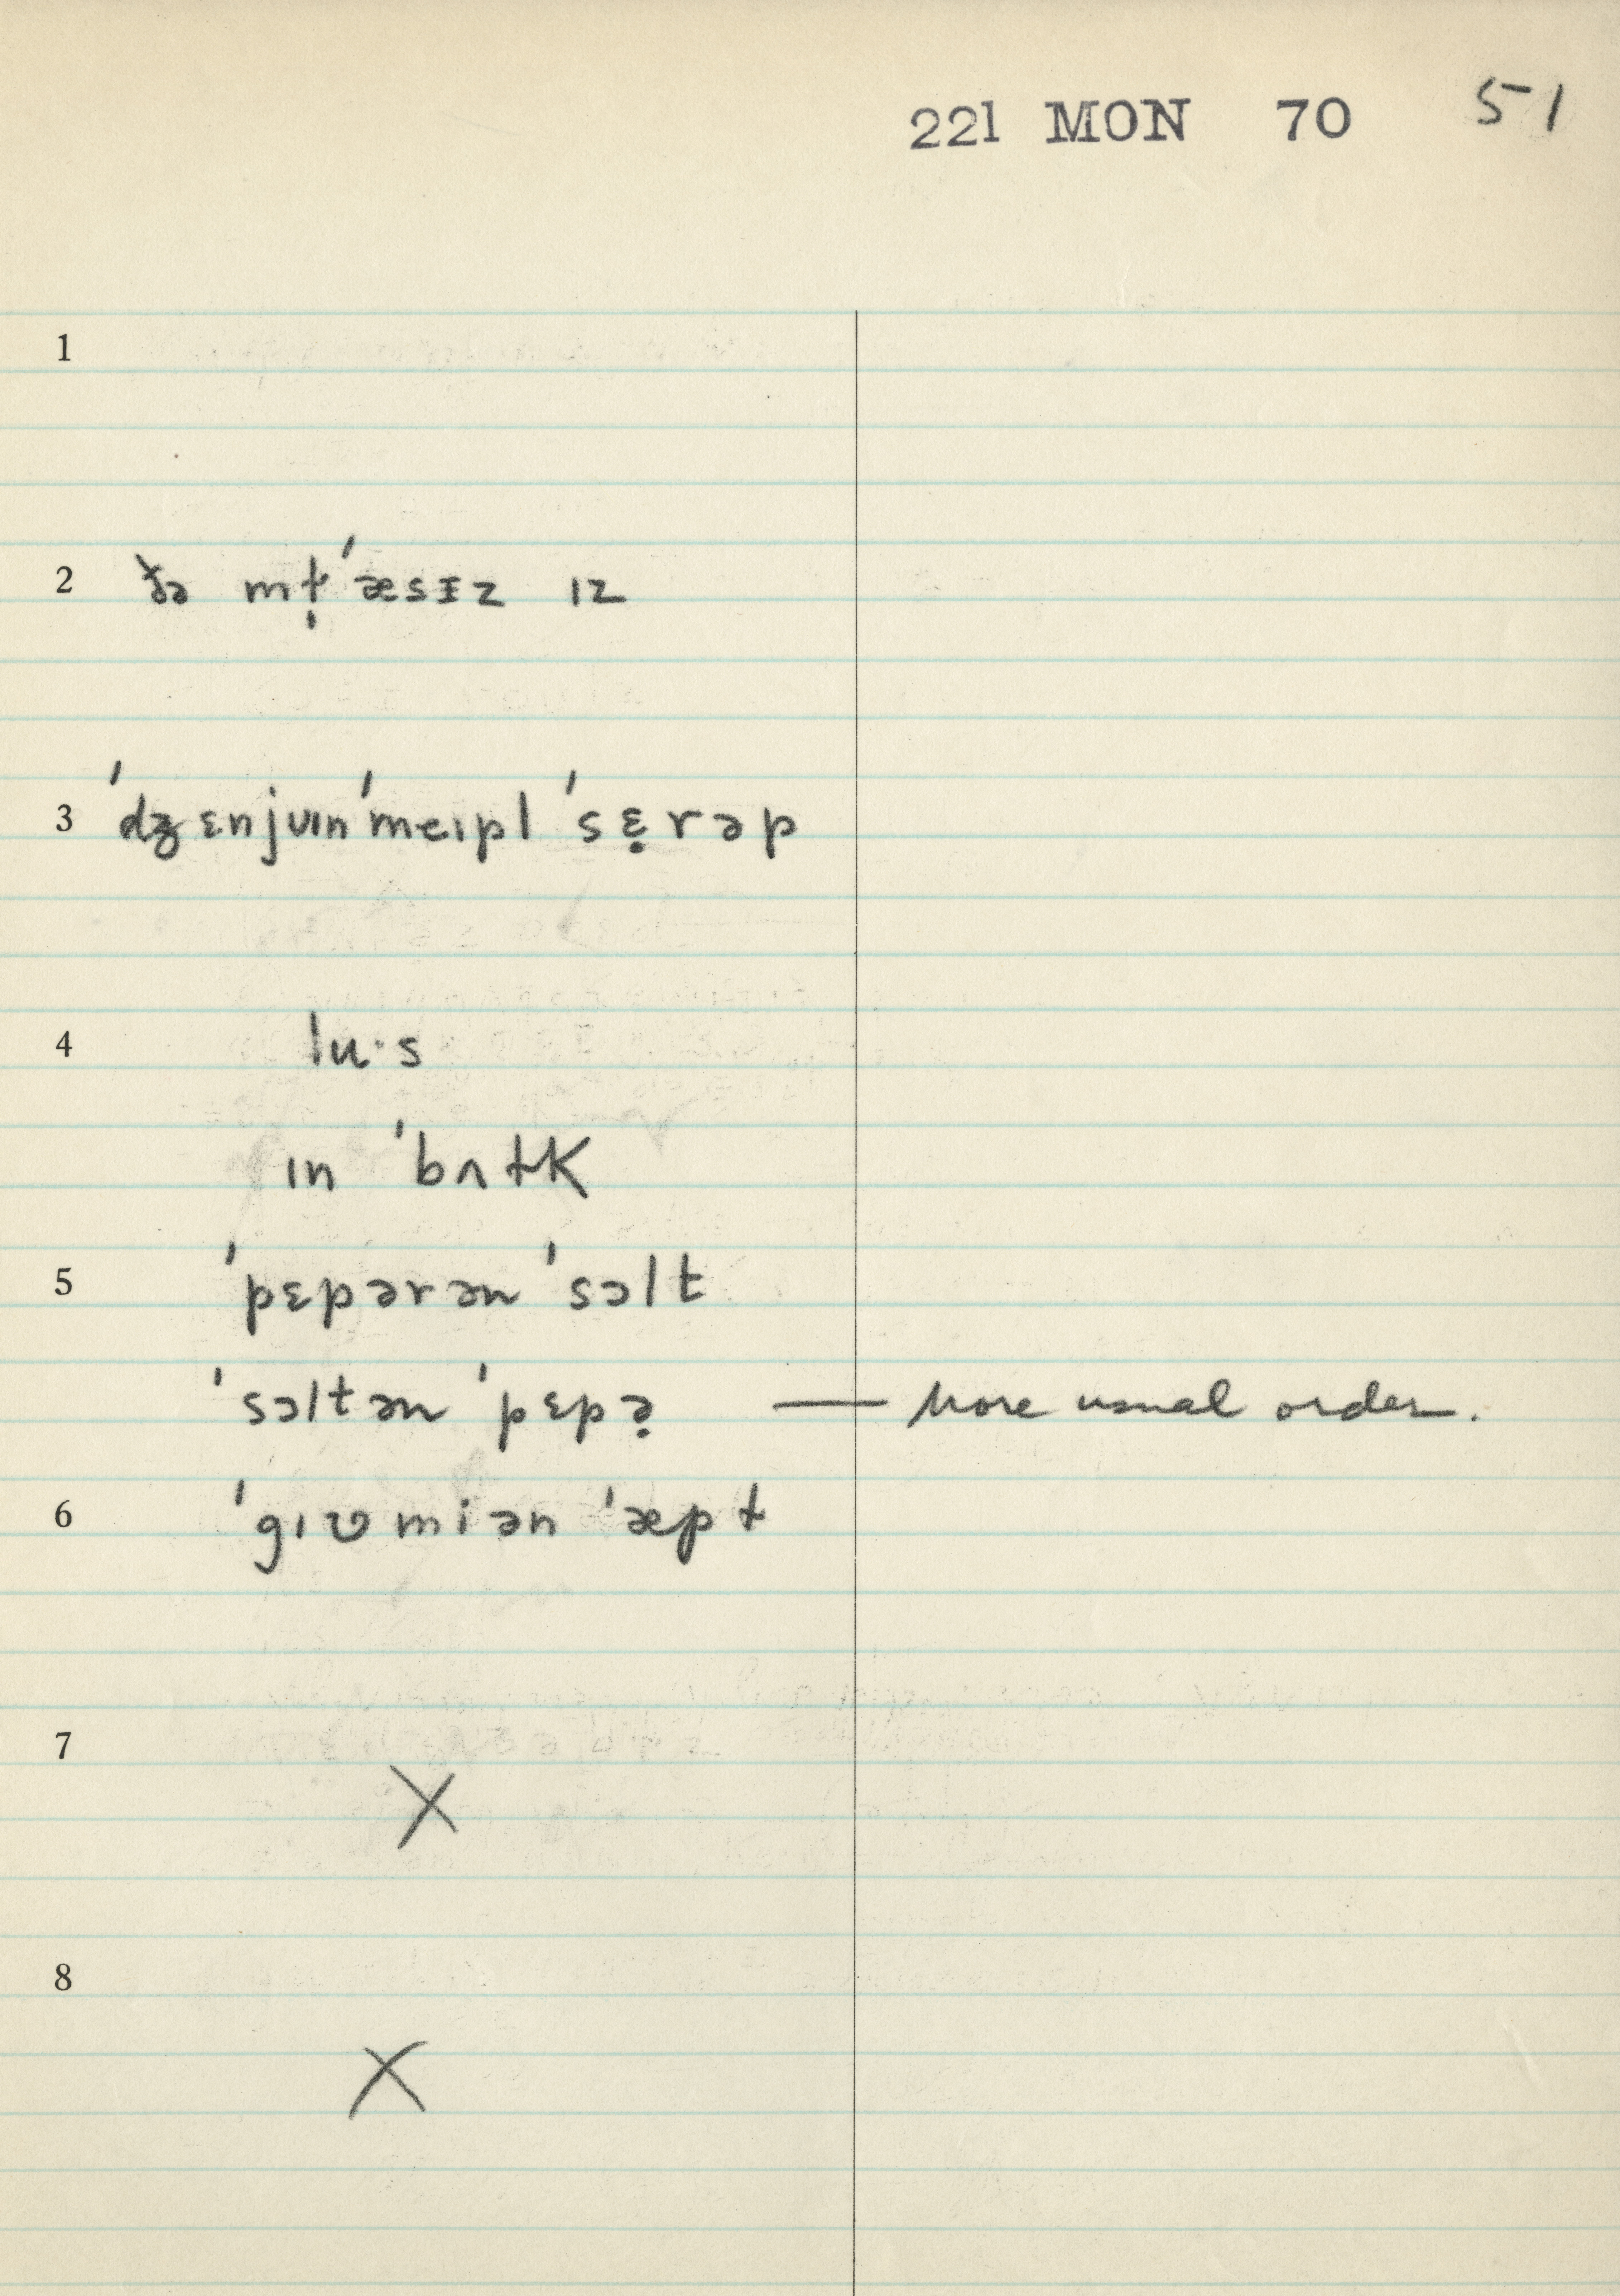 221 MON 70 51
1
2 ðə mɫ̩ˈæsɪz ɪz
3 ˈdʒɛnjᴜɪnˈmeɪpl ˈsɛ̣rəp
4 lu·s
ɪn ˈbʌɫk
5 ˈpɛpərən ˈsɔlt
ˈsɔltən ˈpɛpə̣ — More usual order.
6 ˈgɪʊmiən ˈæpɫ
7
X
8
X